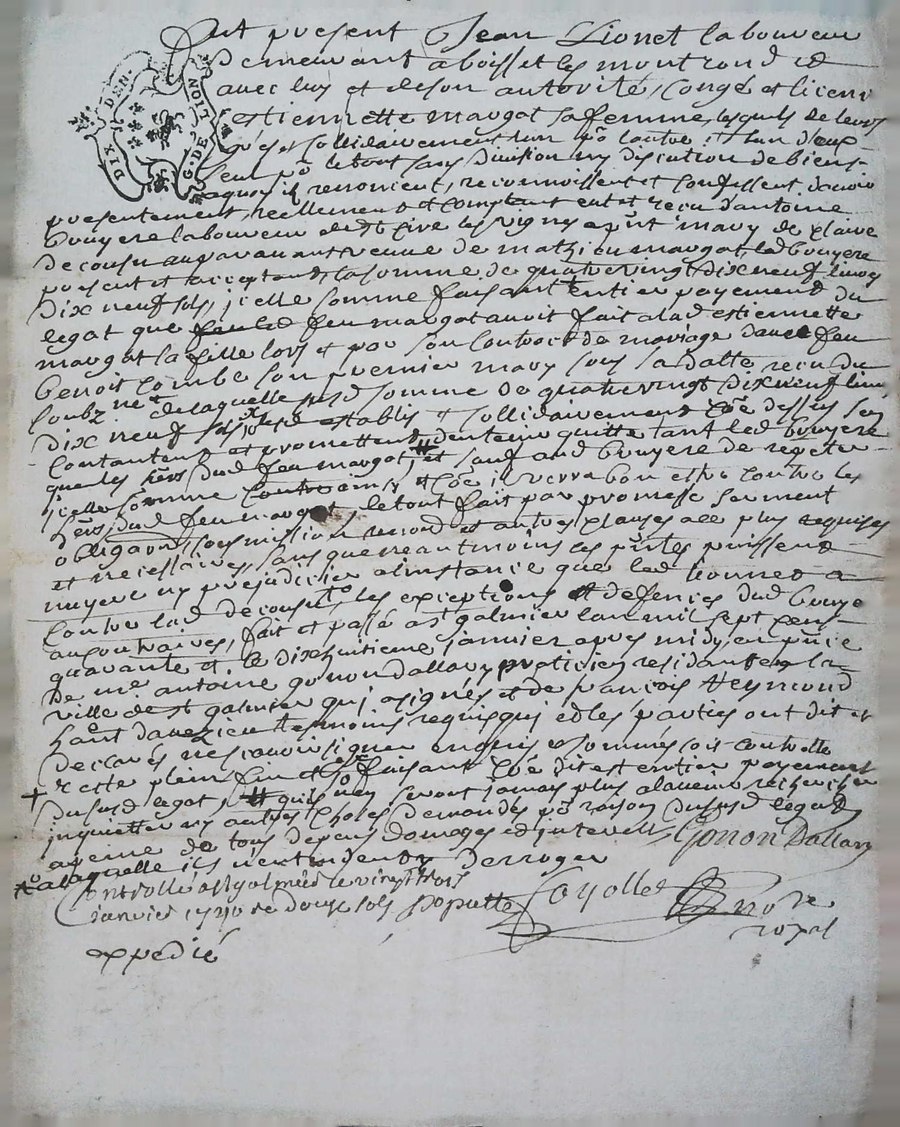 DIX DEN.
G. DE LION
Fut present Jean Lionet laboureur
demeurant a boisset les montrond et
avec luy et de son autorité, congé et licence
estiennette margot sa femme, lesquels de leurs
grés et sollidairement l'un pr lautre et lun deux
seul pr le tout sans division ny discution de biens
aquoy ils renoncent, reconnoissent et confessent davoir
presentement, reellement et comptant eu et receu dantoine
bruyere laboureur de st cire les vignes mary de claire
decousu auparavant veuve de mathieu margot, led bruyere
present et acceptant, la somme de quatrevingt dix neuf livres
dix neuf sols, icelle somme faisant lentier payement du
legat que feu margot avoit fait a lad estiennette
margot sa fille lors et par son contract de mariage avec feu
benoit combe son premier mary sous sa datte, receu du
nere de laquelle susd somme de quatrevingt dix neuf livres
dix neuf sols lesd establis et sollidairement coe dessus sen
contantent et promettent den tenir quitte tant led bruyere
que les hers dud feu margot, et sauf aud bruyere de repeter
icelle somme coe il verra bon estre contre les
hers dud feu margot le tout fait par promesse serment
obligaon, soumission, renond et autres clauses a ce plus requises
et necessaires, sans que neantmoins les pntes puissent
nuyre ny prejudicier alinstance que led lionnet a
contre lad decousu, to les exceptions et defences dud bruyere
au contraires, fait et passé a st galmier lan mil sept cens
quarante et le dixhuitieme janvier apres midy, en pnce
de me antoine gonon dallary praticien residant en la
ville de st galmier qui a signés et de francois Reymond
hant tesmoins requis qui et les parties ont dit et
declarés ne scavoir signer enquis et sommés sois controlle
+ reste plein faisant coe dit est entier payement
du susd legat, quils nen seront jamais plus alavenir rechercher
inquietter ny autres choses demander pr raison du susd legat
a peine de tous depens domages et interest Gonon Dallary
to a laquelle ils nentendent derroger
Controllé a st galmier le vingt trois
Janvier 1740 re douze sols Fayolle nore
royal
expedié